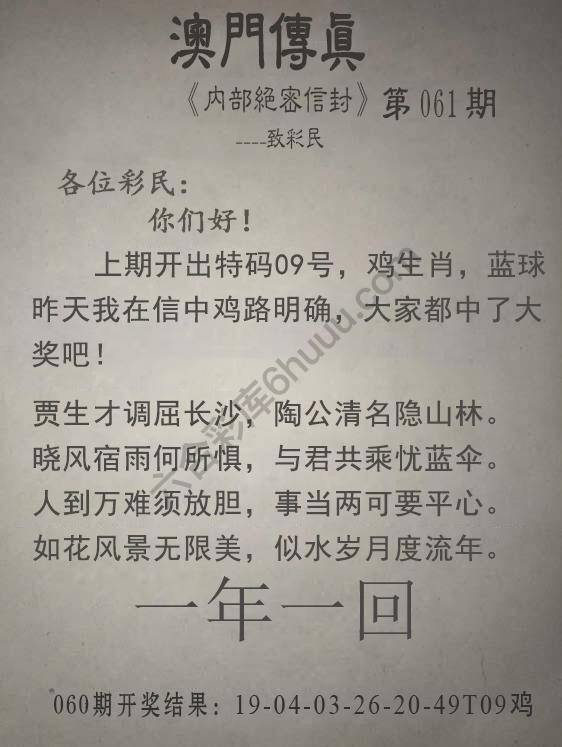 澳門傳眞
《内部絕密信封》第061期
----致彩民
各位彩民：
你们好！
上期开出特码09号，鸡生肖，蓝球
昨天我在信中鸡路明确，大家都中了大
奖吧！
贾生才调屈长沙，陶公清名隐山林。
晓风宿雨何所惧，与君共乘忧蓝伞。
人到万难须放胆，事当两可要平心。
如花风景无限美，似水岁月度流年。
一年一回
060期开奖结果：19-04-03-26-20-49T09鸡
六合彩库6huuu.com